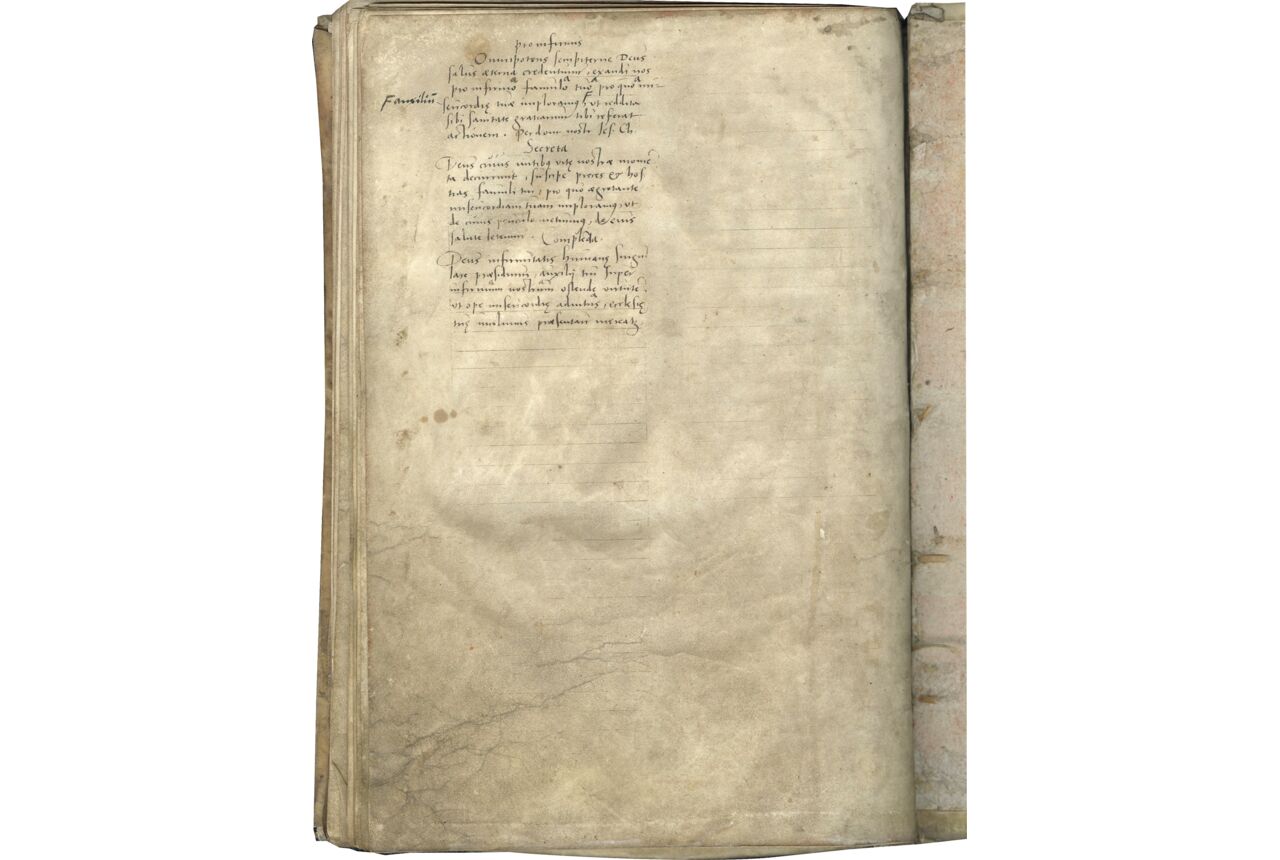 pro infirmis
Omnipotens sempiterne Deus
salus æterna credentium, exaudi nos
pro infirmo famulo tuo pro quo mi-
sericordię tuæ imploramꝰ ut reddita
Famulū
sibi sanitate gratiarum tibi referat
actionem. Per dom̄ nostr̄ Ies. Ch
Secreta
Deus cuius nutibꝰ vitę nostræ momē
ta decurrunt, suscipe preces et hos
tias famuli tui, pro quo ægrotante
misericordiam tuam imploramꝰ, ut
de cuius periculo metuimꝰ, de eius
salute letemur. Complēda.
Deus infirmitatis humanę singu
lare præsidium, auxilij tui super
infirmum nostrum ostende virtutē,
ut ope misericordię adiutus, ecclesię
tuę incolumis præsentari mereatꝛ